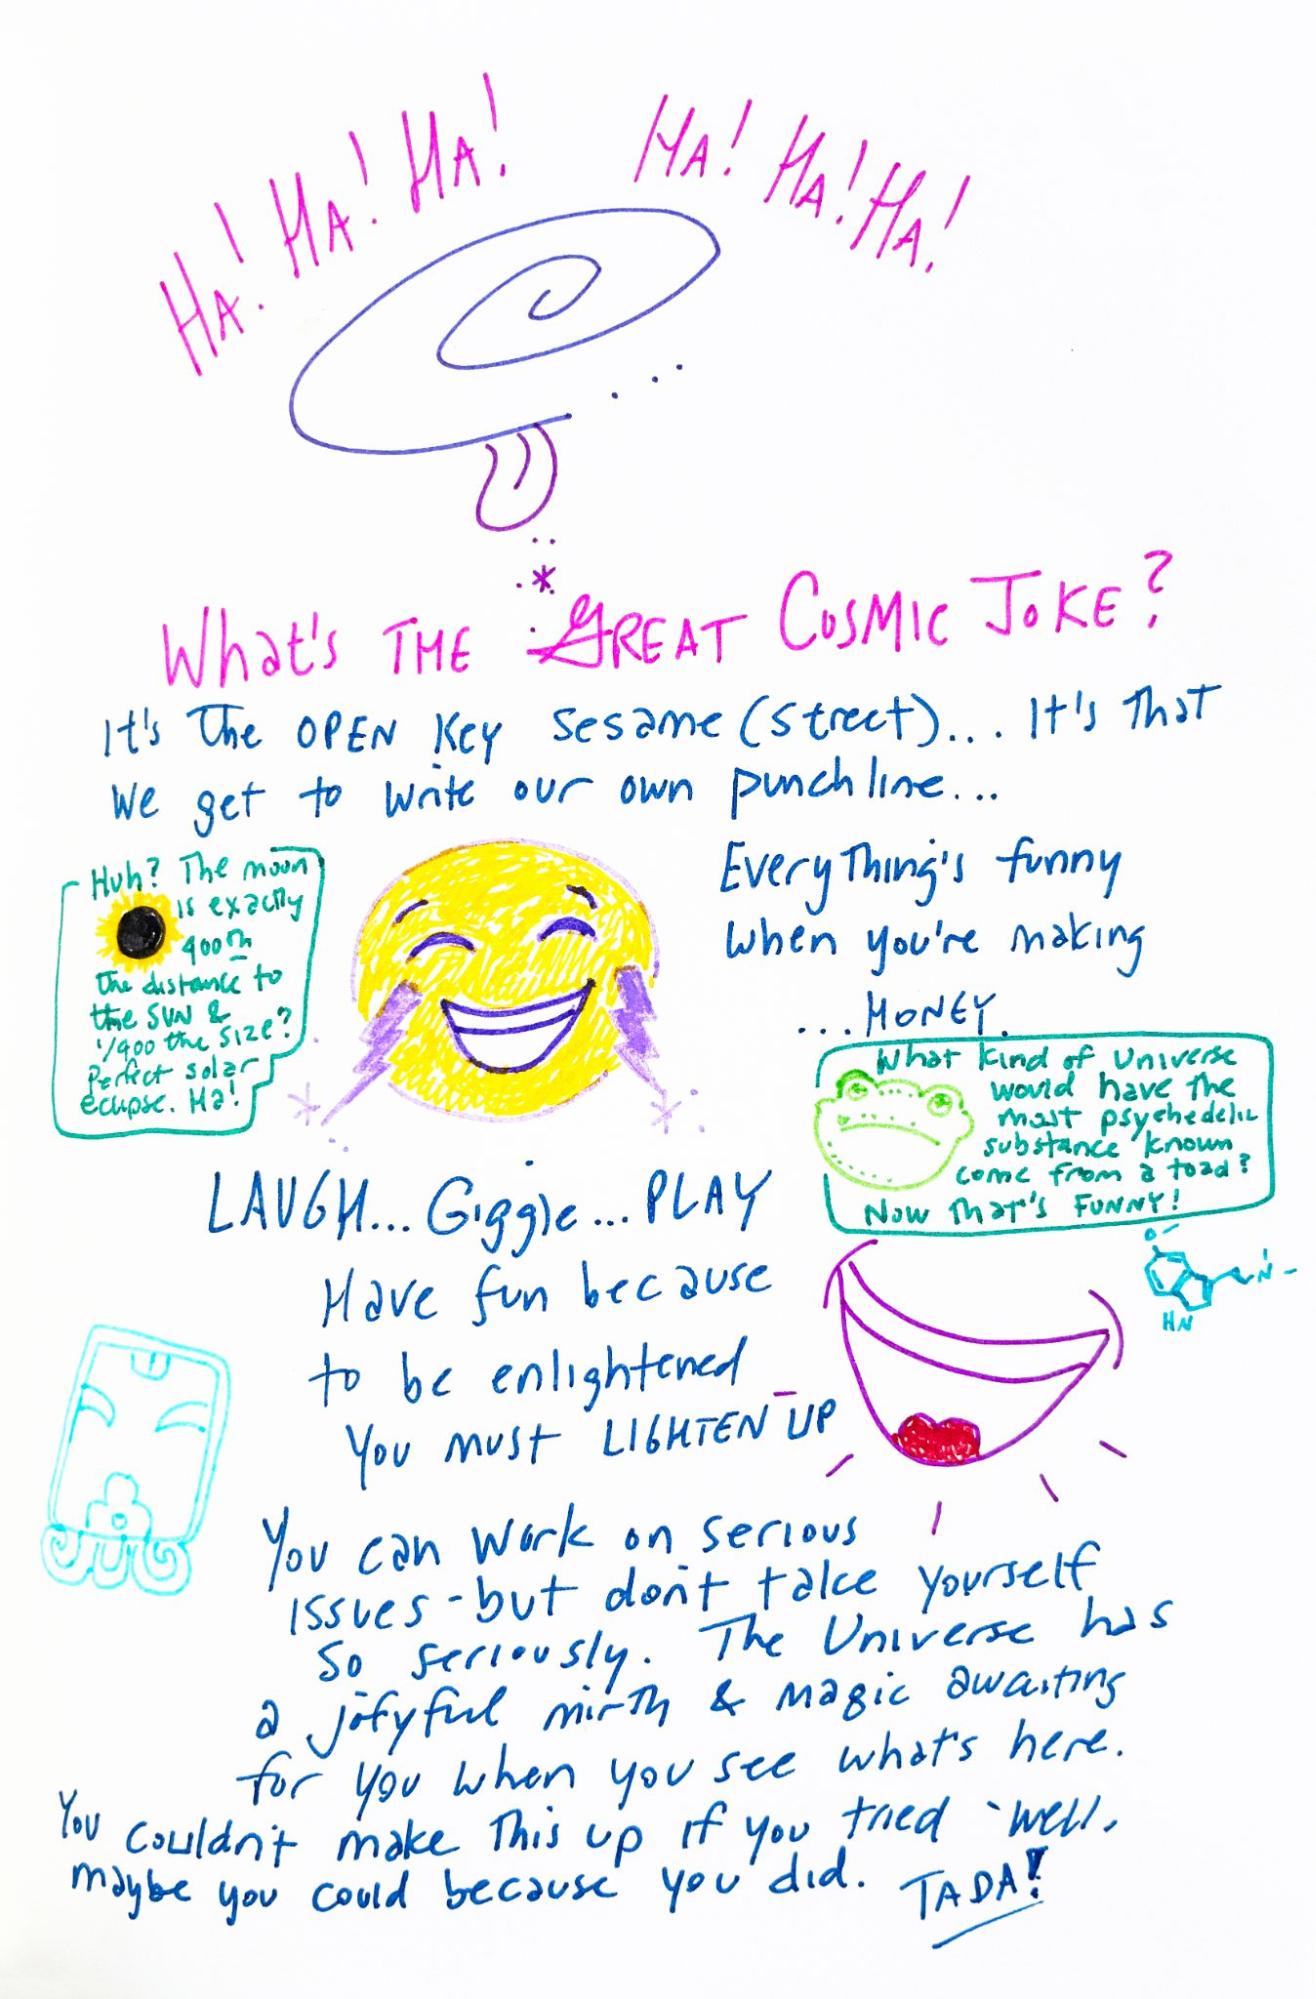 HA! HA! HA! HA! HA! HA!
What's THE GREAT COSMIC JOKE?
It's The OPEN Key Sesame (Street)... It's That
We get to write our own punchline...
Huh? The moon
is exactly
400th
the distance to
the SUN &
1/400 the size?
Perfect solar
eclipse. Ha!
EveryThing's funny
When you're making
...MONEY.
What kind of Universe
would have the
most psychedelic
substance known
come from a toad?
Now That's FUNNY!
O-
N-
HN
LAUGH... Giggle... PLAY
Have fun because
to be enlightened
You must LIGHTEN-UP
You can work on serious
issues - but don't take yourself
so seriously. The Universe has
a joyful mirth & magic awaiting
for you when you see what's here.
You couldn't make This up if you tried - well,
maybe you could because you did. TADA!